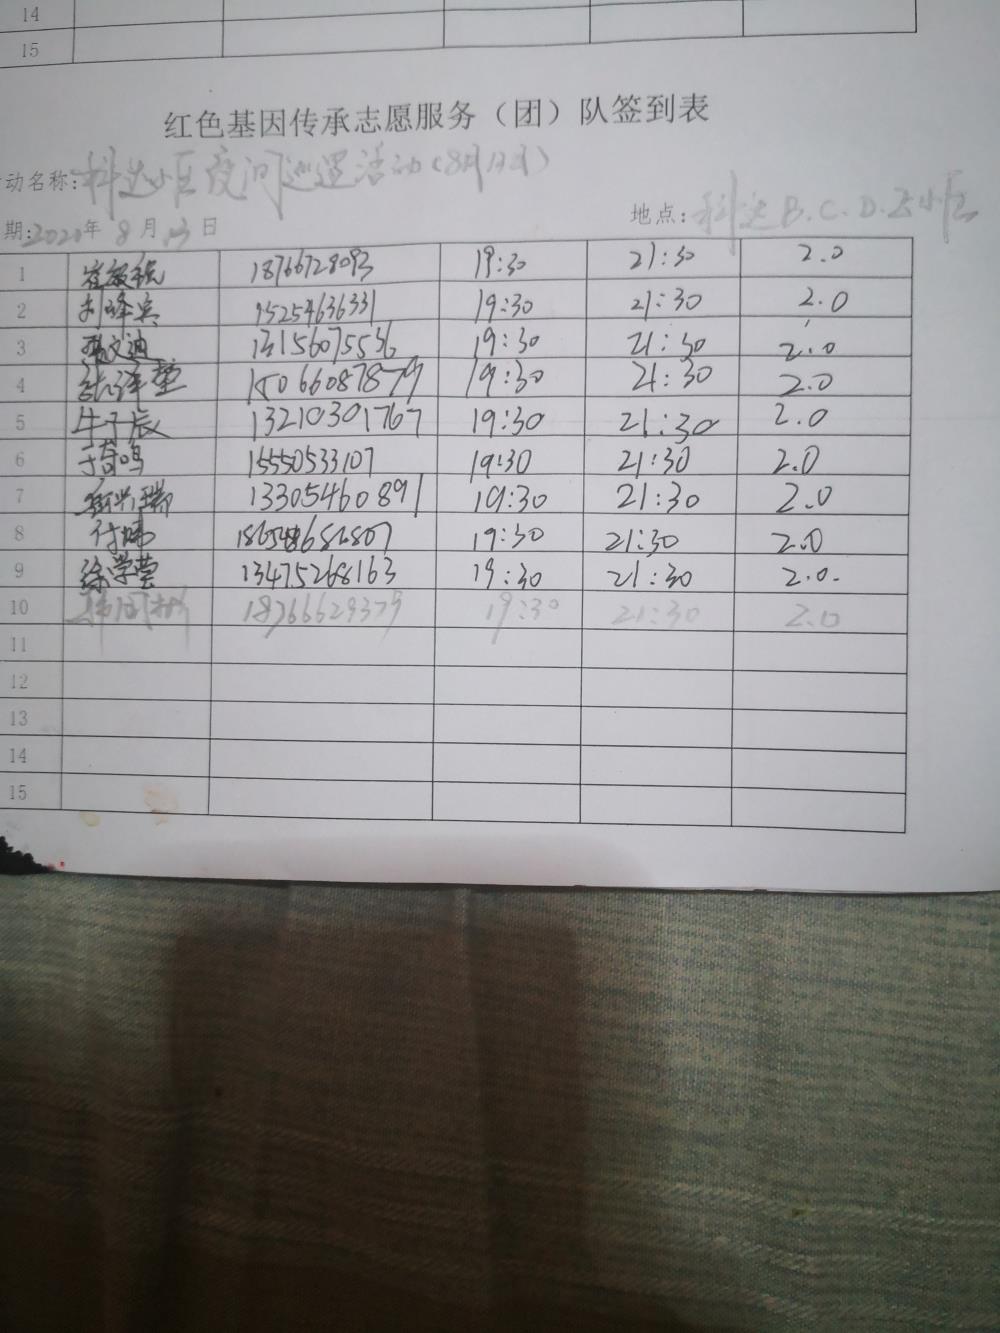 14
15
红色基因传承志愿服务（团）队签到表
动名称:科达小区夜间巡逻活动(8月13日)
期:2020年8月13日 地点:科达B.C.D.E小区
1 18766728093 19:30 21:30 2.0
2 刘峰宾 15254636331 19:30 21:30 2.0
3 13156075536 19:30 21:30 2.0
4 15066087879 19:30 21:30 2.0
5 牛子辰 13210301767 19:30 21:30 2.0
6 于奇鸣 15550533107 19:30 21:30 2.0
7 13305460891 19:30 21:30 2.0
8 付娜 19:30 21:30 2.0
9 徐学莹 13475268163 19:30 21:30 2.0.
10 18766629379 19:30 21:30 2.0
11
12
13
14
15